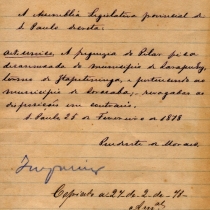 A Assembléa Legislativa provincial de
S. Paulo decreta:
Art. unico. A freguezia do Pilar fica
desannexada do municipio de Sarapuhy,
termo de Itapetininga, e pertencendo ao
municipio de Sorocaba; revogadas as
disposições em contrario.
S. Paulo 26 de Fevereiro de 1878
Prudente de Moraes
Copiado a 27 de 2 de